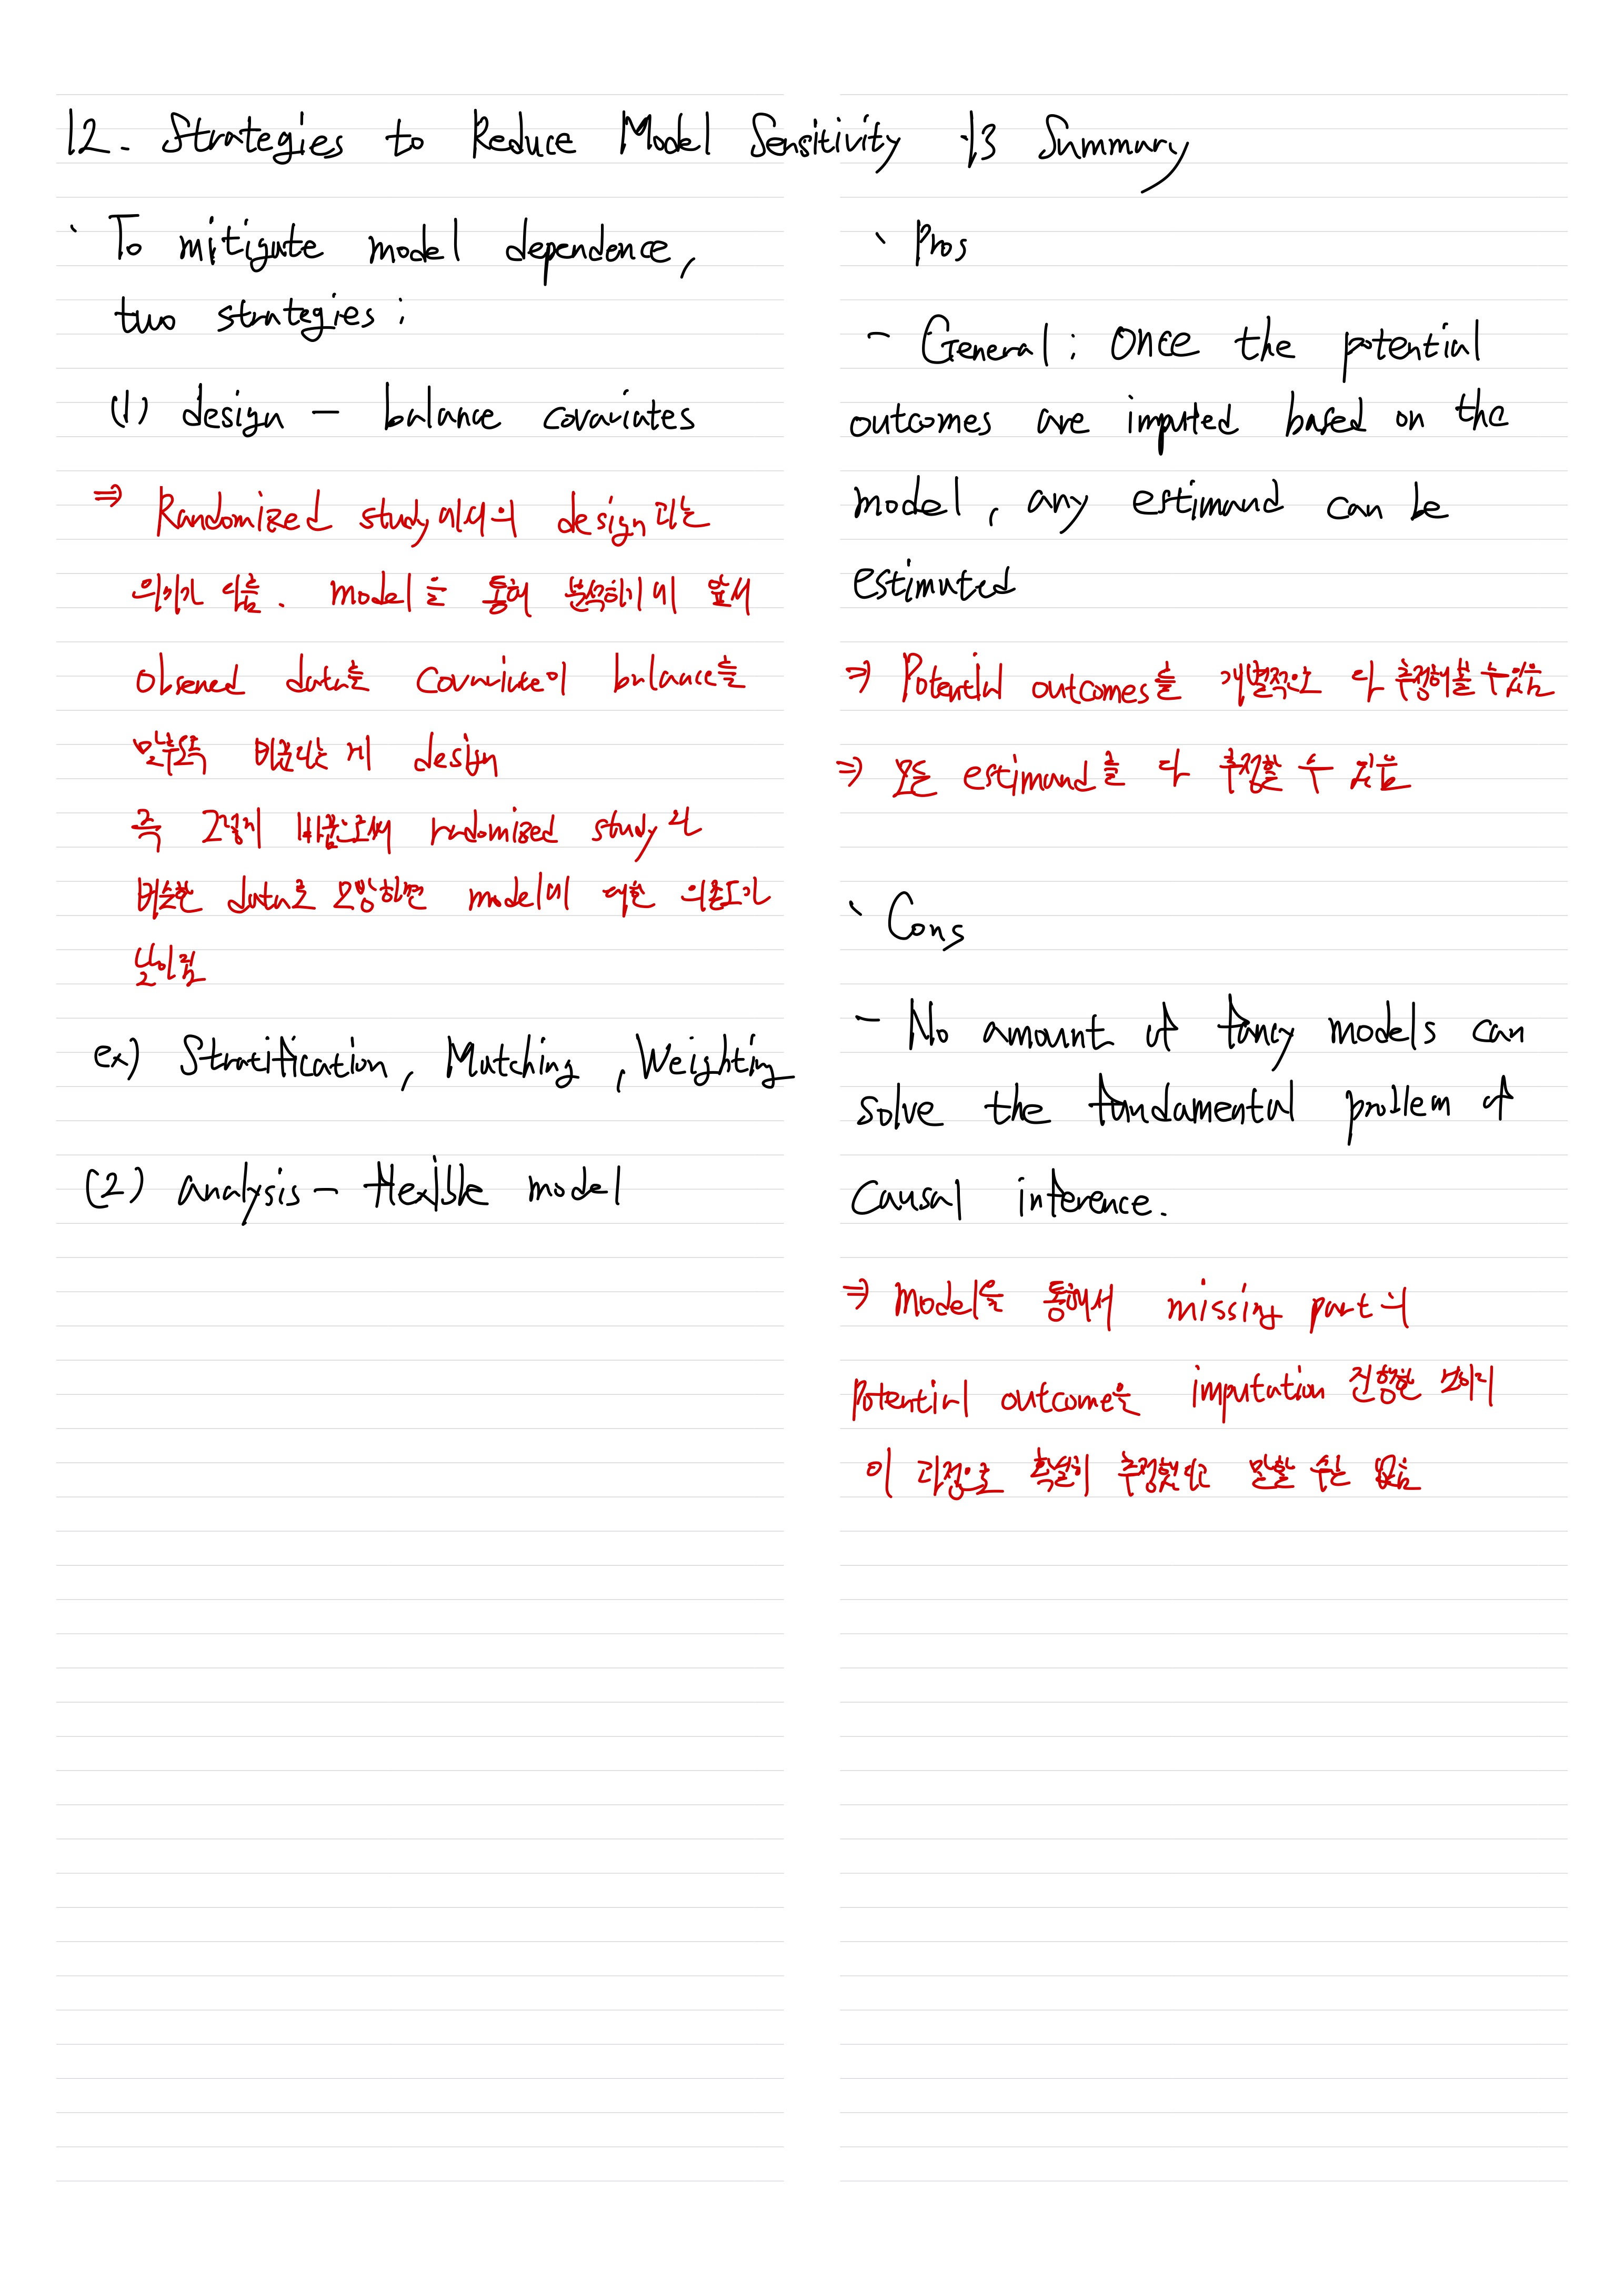 12. Strategies to Reduce Model Sensitivity
· To mitigate model dependence,
two strategies :
(1) design - balance covariates
⇒ Randomized study에서의 design과는
의미가 다름. model을 통해 분석하기에 앞서
observed data를 covariate이 balance를
맞추도록 바꾼다는 게 design
즉 그렇게 바꿈으로써 radomized study와
비슷한 data로 모방하면 model에 대한 의존도가
낮아짐
ex) Stratification, Matching, Weighting
(2) analysis - flexible model
13 Summary
· Pros
- General : Once the potential
outcomes are imputed based on the
model, any estimand can be
estimated
⇒ Potential outcomes를 개별적으로 다 추정해볼 수 있음
⇒ 모든 estimand를 다 추정할 수 있음
· Cons
- No amount of fancy models can
solve the fundamental problem of
causal inference.
⇒ Model을 통해서 missing part의
potential outcome을 imputation 진행한
이 과정으로 확실히 추정했다고 말할 수는 없음